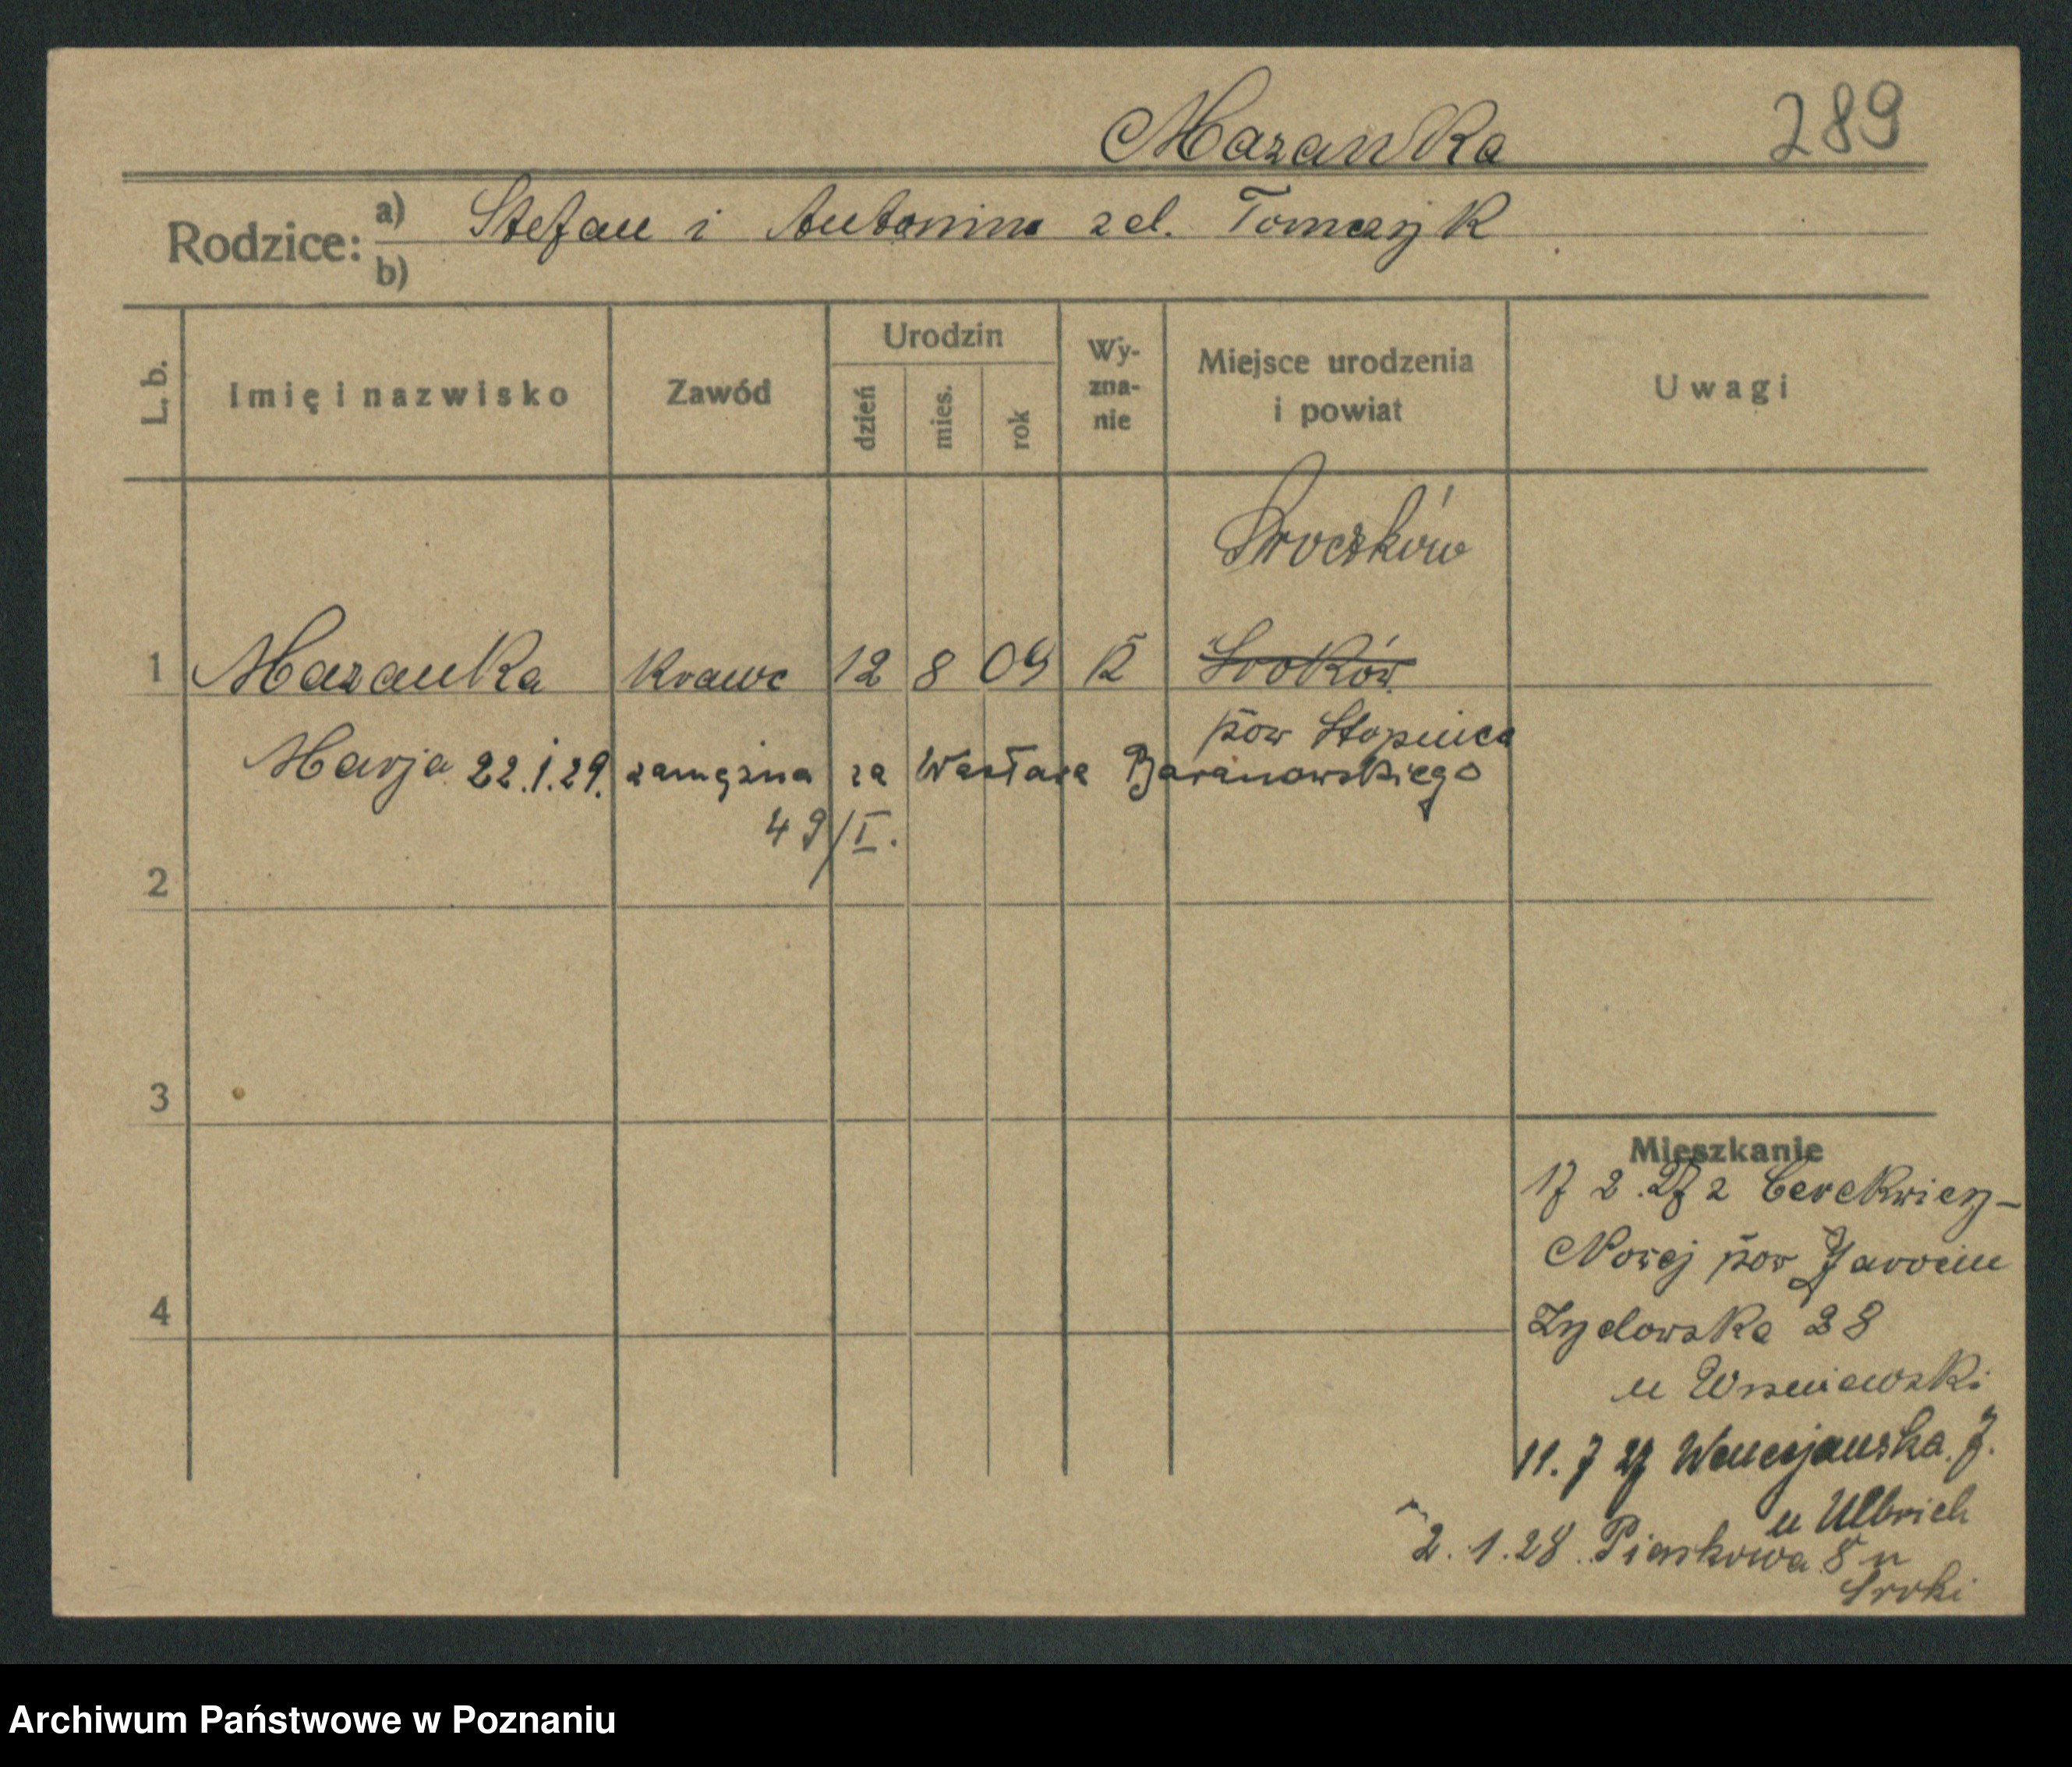 Mazanka 289
Rodzice: a) Stefan i Antonina zd. Tomczyk
b)
L. b. Imię i nazwisko Zawód Urodzin dzień mies. rok Wy-zna-nie Miejsce urodzenia i powiat Uwagi
Sroczków
1 Mazanka krawc 12 8 09 K Sroków
pow Stopnica
Marja 22.1.29. zamężna za Wacława Baranowskiego
49/I.
2
3
4
Mieszkanie
17 2 27 z Cerekwicy-
Nowej pow Jarocin
Zydowska 28
u Wisniewski
11. 7 27 Wenecjanska 7.
u Ulbrich
2. 1. 28. Piaskowa 8 u
Sroki
Archiwum Państwowe w Poznaniu